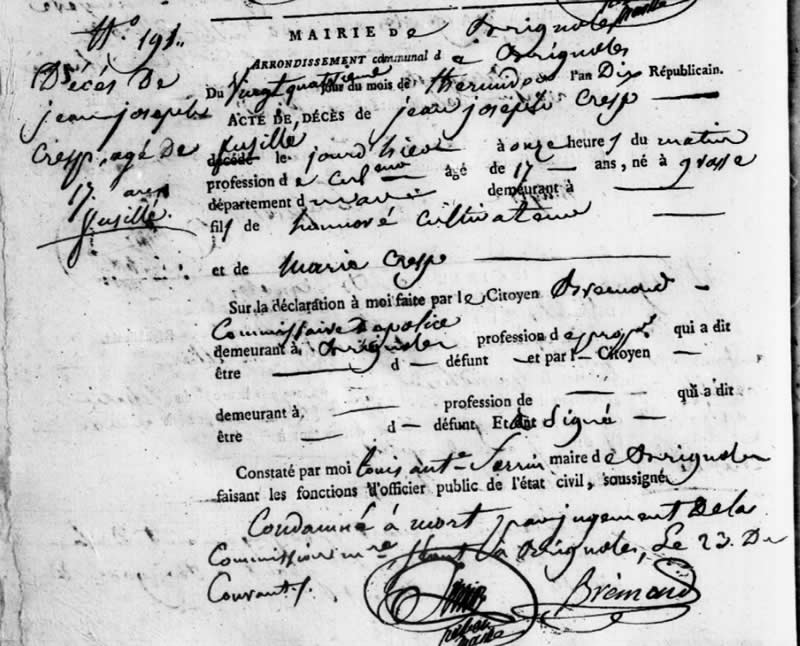 N.° 191.
Décès de
jean joseph
Cresp, agé de
17. ans
fusillé.
MAIRIE De Brignoles
ARRONDISSEMENT communal d e Brignoles
Du Vingt quatrième jour du mois de thermidor l'an Dix Républicain.
ACTE DE DÉCÈS de jean joseph Cresp
fusillé
décédé le jourd'hier à onze heures du matin
profession d e cul.eur âgé de 17 ans, né à grasse
département d u var demeurant à
fils de honnoré cultivateur
et de Marie Cresp
Sur la déclaration à moi faite par le Citoyen Brémond
Commissaire de police
demeurant à Brignoles profession de qui a dit
être d défunt et par l Citoyen
demeurant à profession de qui a dit
être d défunt. Et ont Signé
Constaté par moi Louis ant.e maire de Brignoles
faisant les fonctions d'officier public de l'état civil, soussigné
Condamné à mort par jugement De la
Commission m.re Séant à Brignoles, Le 23. Du
Courant.
Brémond